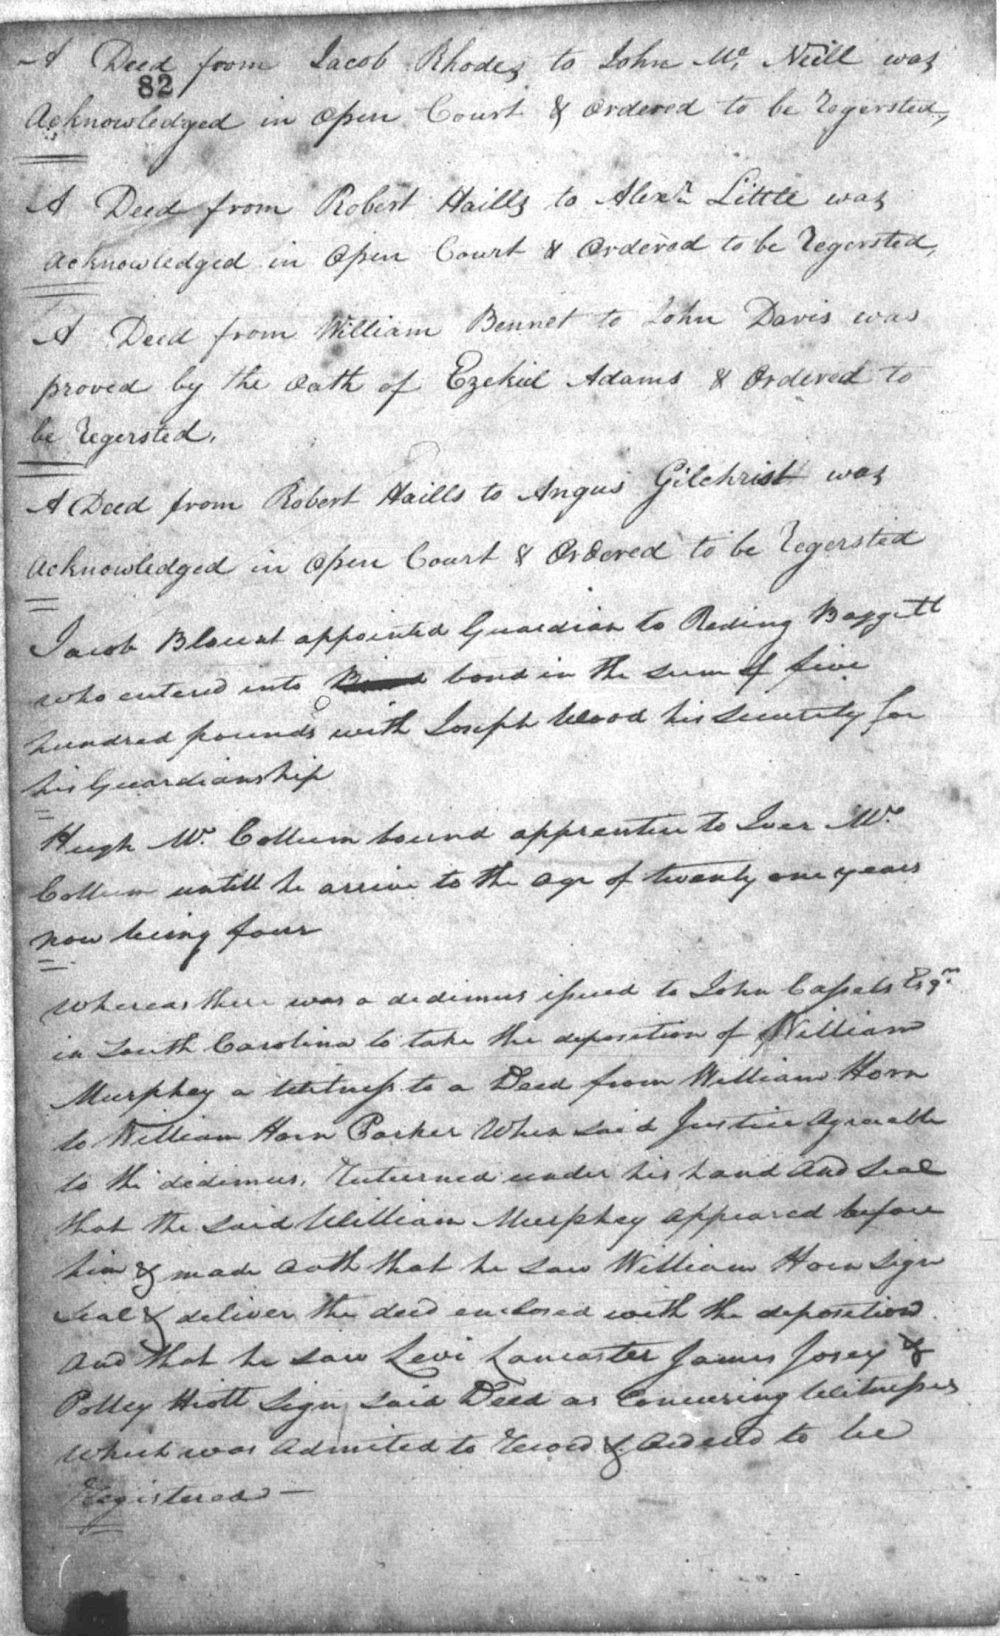 A Deed from Jacob Rhodes to John Mc. Neill was
82
Acknowledged in open Court & ordered to be Regersted,
A Deed from Robert Haills to Alexr. Little was
acknowledged in open Court & Ordered to be Regersted,
A Deed from William Bennet to John Davis was
proved by the oath of Ezekiel Adams & Ordered to
be Regersted.
A Deed from Robert Haills to Angus Gilchrist was
acknowledged in open Court & Ordered to be Regersted
Jacob Blount appointed Guardian to Reding Baggett
who entered into bond in the sum of five
hundred pounds with Joseph Wood his Security for
his Guardianship
Hugh Mc. Collum bound apprentice to Iver Mc.
Collum untill he arrive to the age of twenty one years
now being four
Whereas there was a dedimus issued to John Cassels Esqr.
in South Carolina to take the deposition of William
Murphey a Witness to a Deed from William Horn
to William Horn Parker When said Justice Agreeable
to the dedimus. Returned under his hand And Seal
that the said William Murphey appeared before
him & made oath that he saw William Horn Sign
Seal & deliver the deed enclosed with the deposition.
And that he saw Levi Lancaster James Josey &
Polley Hiott Sign said Deed as Concuring Witnesses
which was Admited to Record & Ordered to be
Registered —